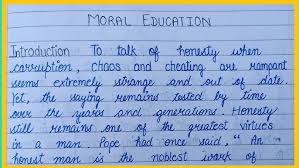 MORAL EDUCATION
Introduction To talk of honesty when
corruption, chaos and cheating are rampant
seems extremely strange and out of date.
Yet, the saying remains tested by time
over the years and generations. Honesty
still remains one of the greatest virtues
in a man. Pope had once said, "An
honest man is the noblest work of